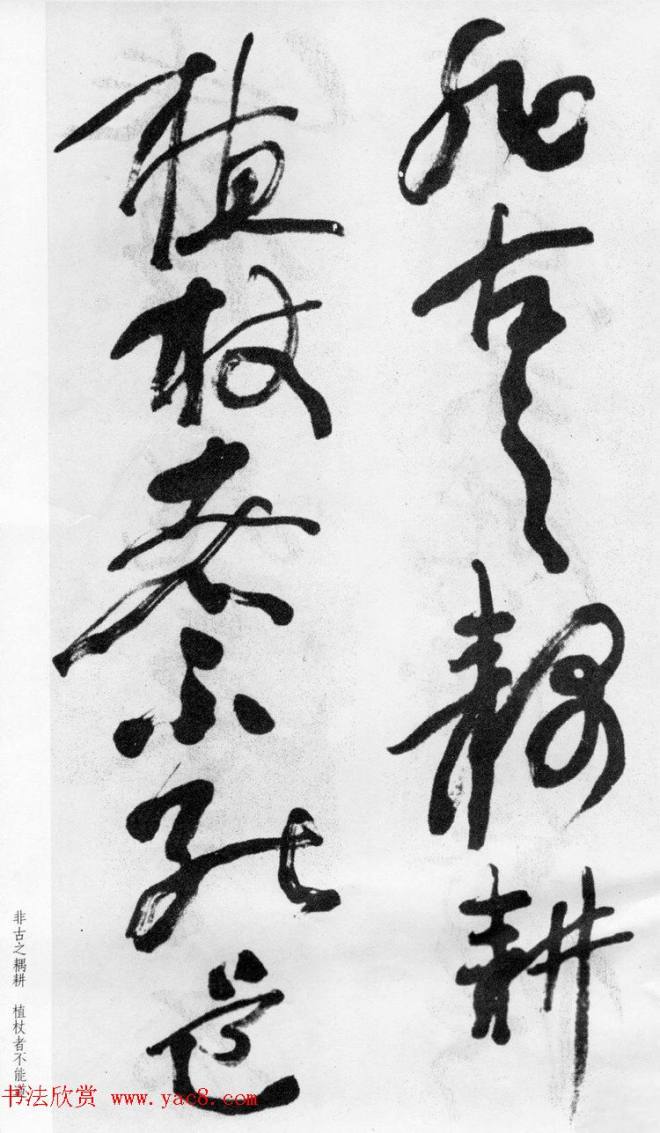 非古之耦耕
植杖者不能道
非古之耦耕 植杖者不能道
书法欣赏 www.yac8.com